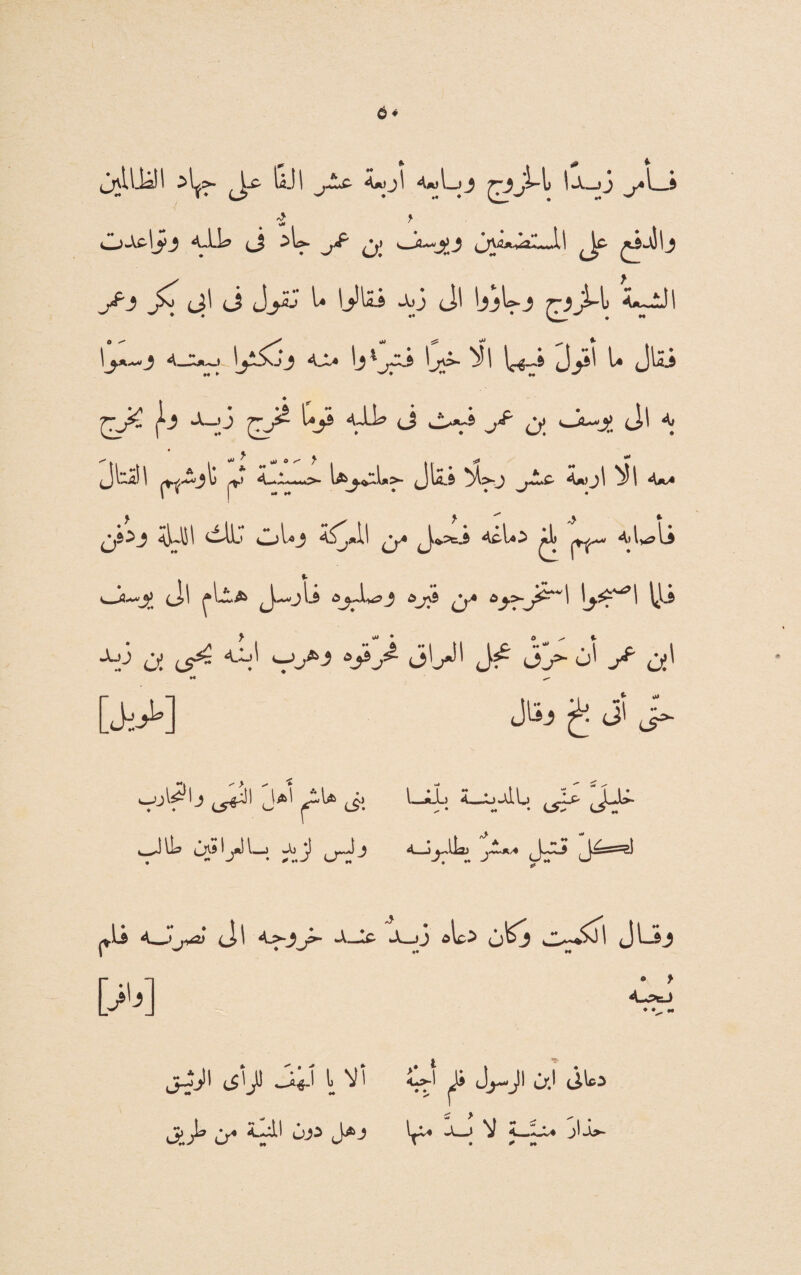 ٥٠
فأمر زيدًا بالخروج وبايعه أربعة عشر الفًا على جهاد الظالمين
والدفع على المستضعفين ويوسف بن عمر جادٌّ فى طلبه وتواعدت
الشيعةُ بالخروج وجاؤوا الى زيد فقالوا ما تقول فى ابى بكر وعمر
فقال ما أقولُ فيهما الّا خيرًا فتبرّءوا منه ونكثوا بيعته وسعوا
به الى يوسف بن عمر فبعث فى طلبه قومًا فخرج زيد ولم يخرج
معه الّا اربعة عشر رجلًا فقال جعلتموها حُسينيّة ثم ناوشهم القتال
فأصابه سهم بلغ دماغه فحُمل من المعركة ومات تلك الليلة ودُفن
فلمّا اصبحوا استخرجوه من قبره وصلبوه فأرسل هشام الى يوسف
ابن عمر أن حرّق عجل العراق فحرّقوه وهرب ابنُه يحيى بن زيد
حتّى أتى بلخ وقال [طويل]
خليلىّ عنّى بالمدينة بلّغا بنى هاشم أهلَ النُهى والتجارب
لكلّ قتيل معشرٌ يطلبونه وليس لزيد بالعراقين طالب
وقال الكميت وكان دعاه زيدٌ عند خروجه الى نصرته فلم
يُجبْه [وافر]
دعانى ابن الرسول فلم أُجبْهُ ألا يا لَهْفَ للرأى الوثيق
حذارَ منيّة لا بُدّ منها وهل دون المنيّة من طريق